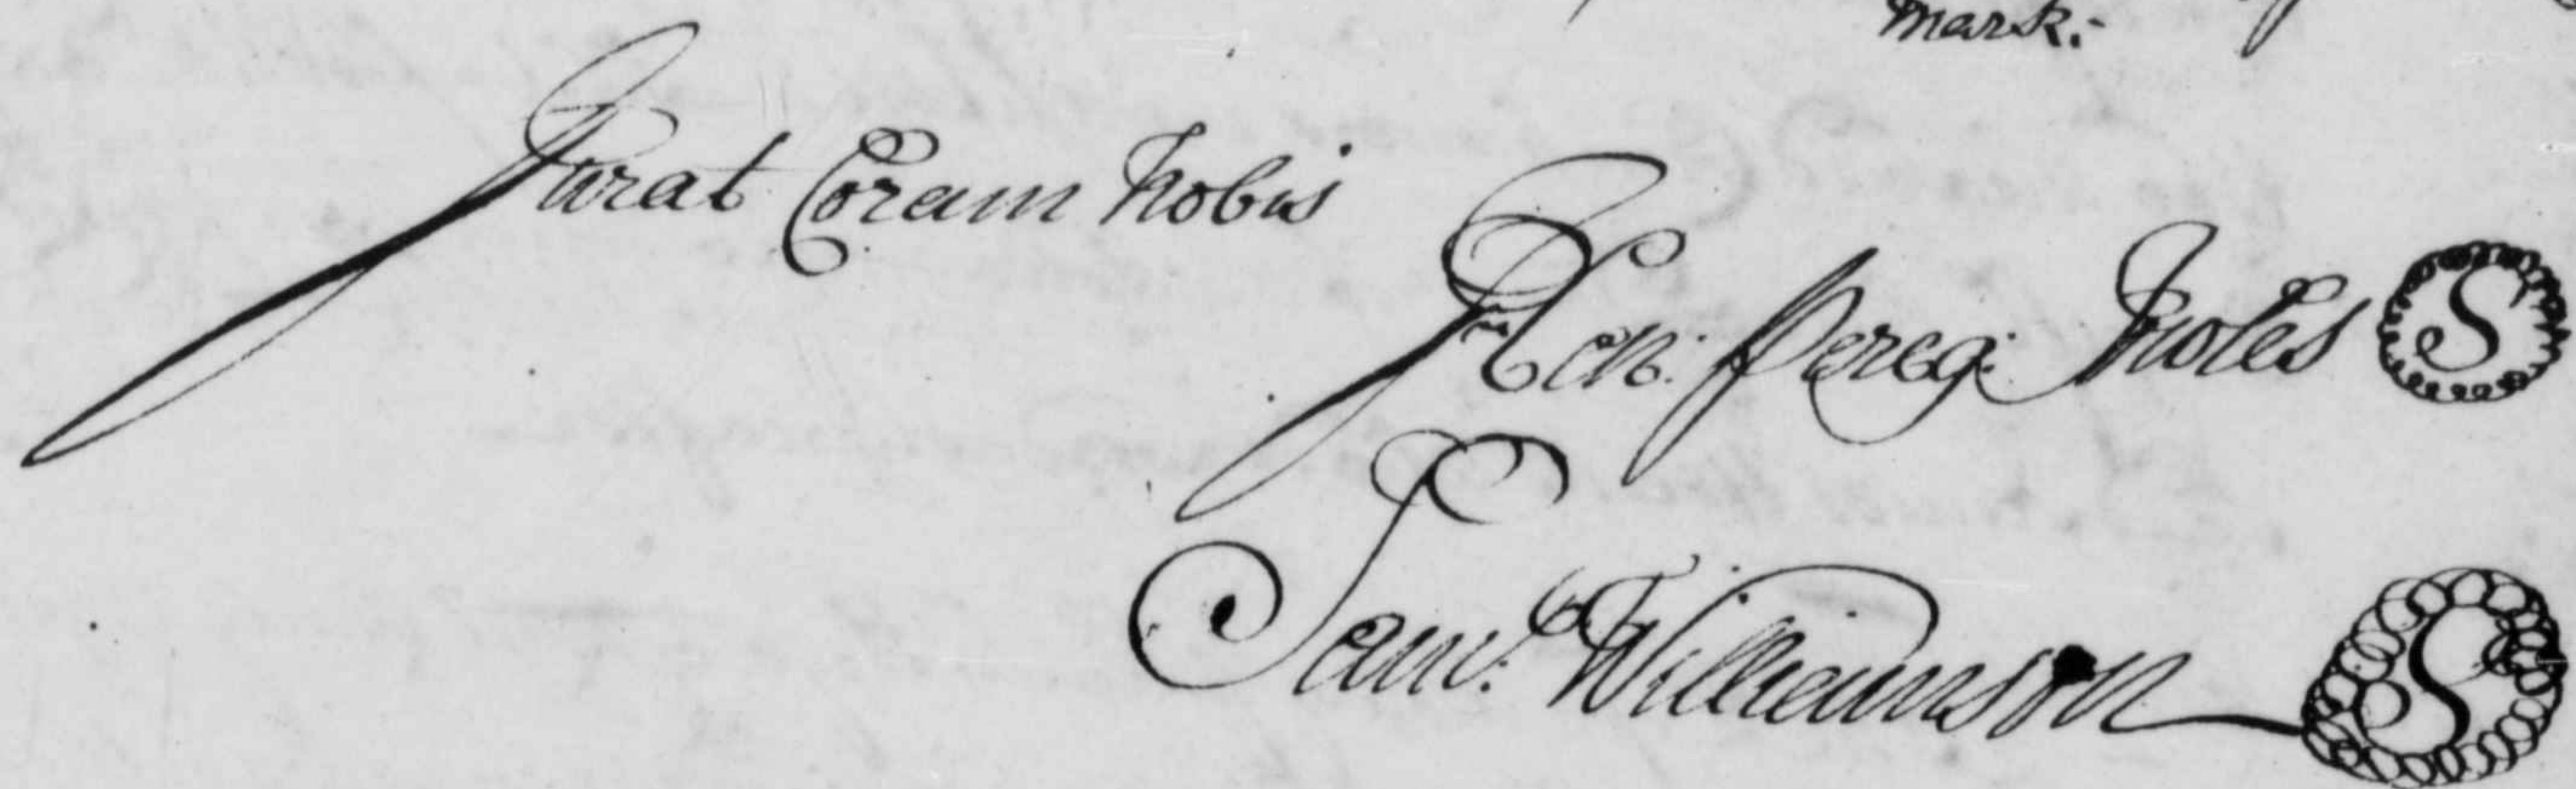 mark:-
Jurat Coram Nobis
Hen: Pereg: Jholes S
Sam:ll Williamson S